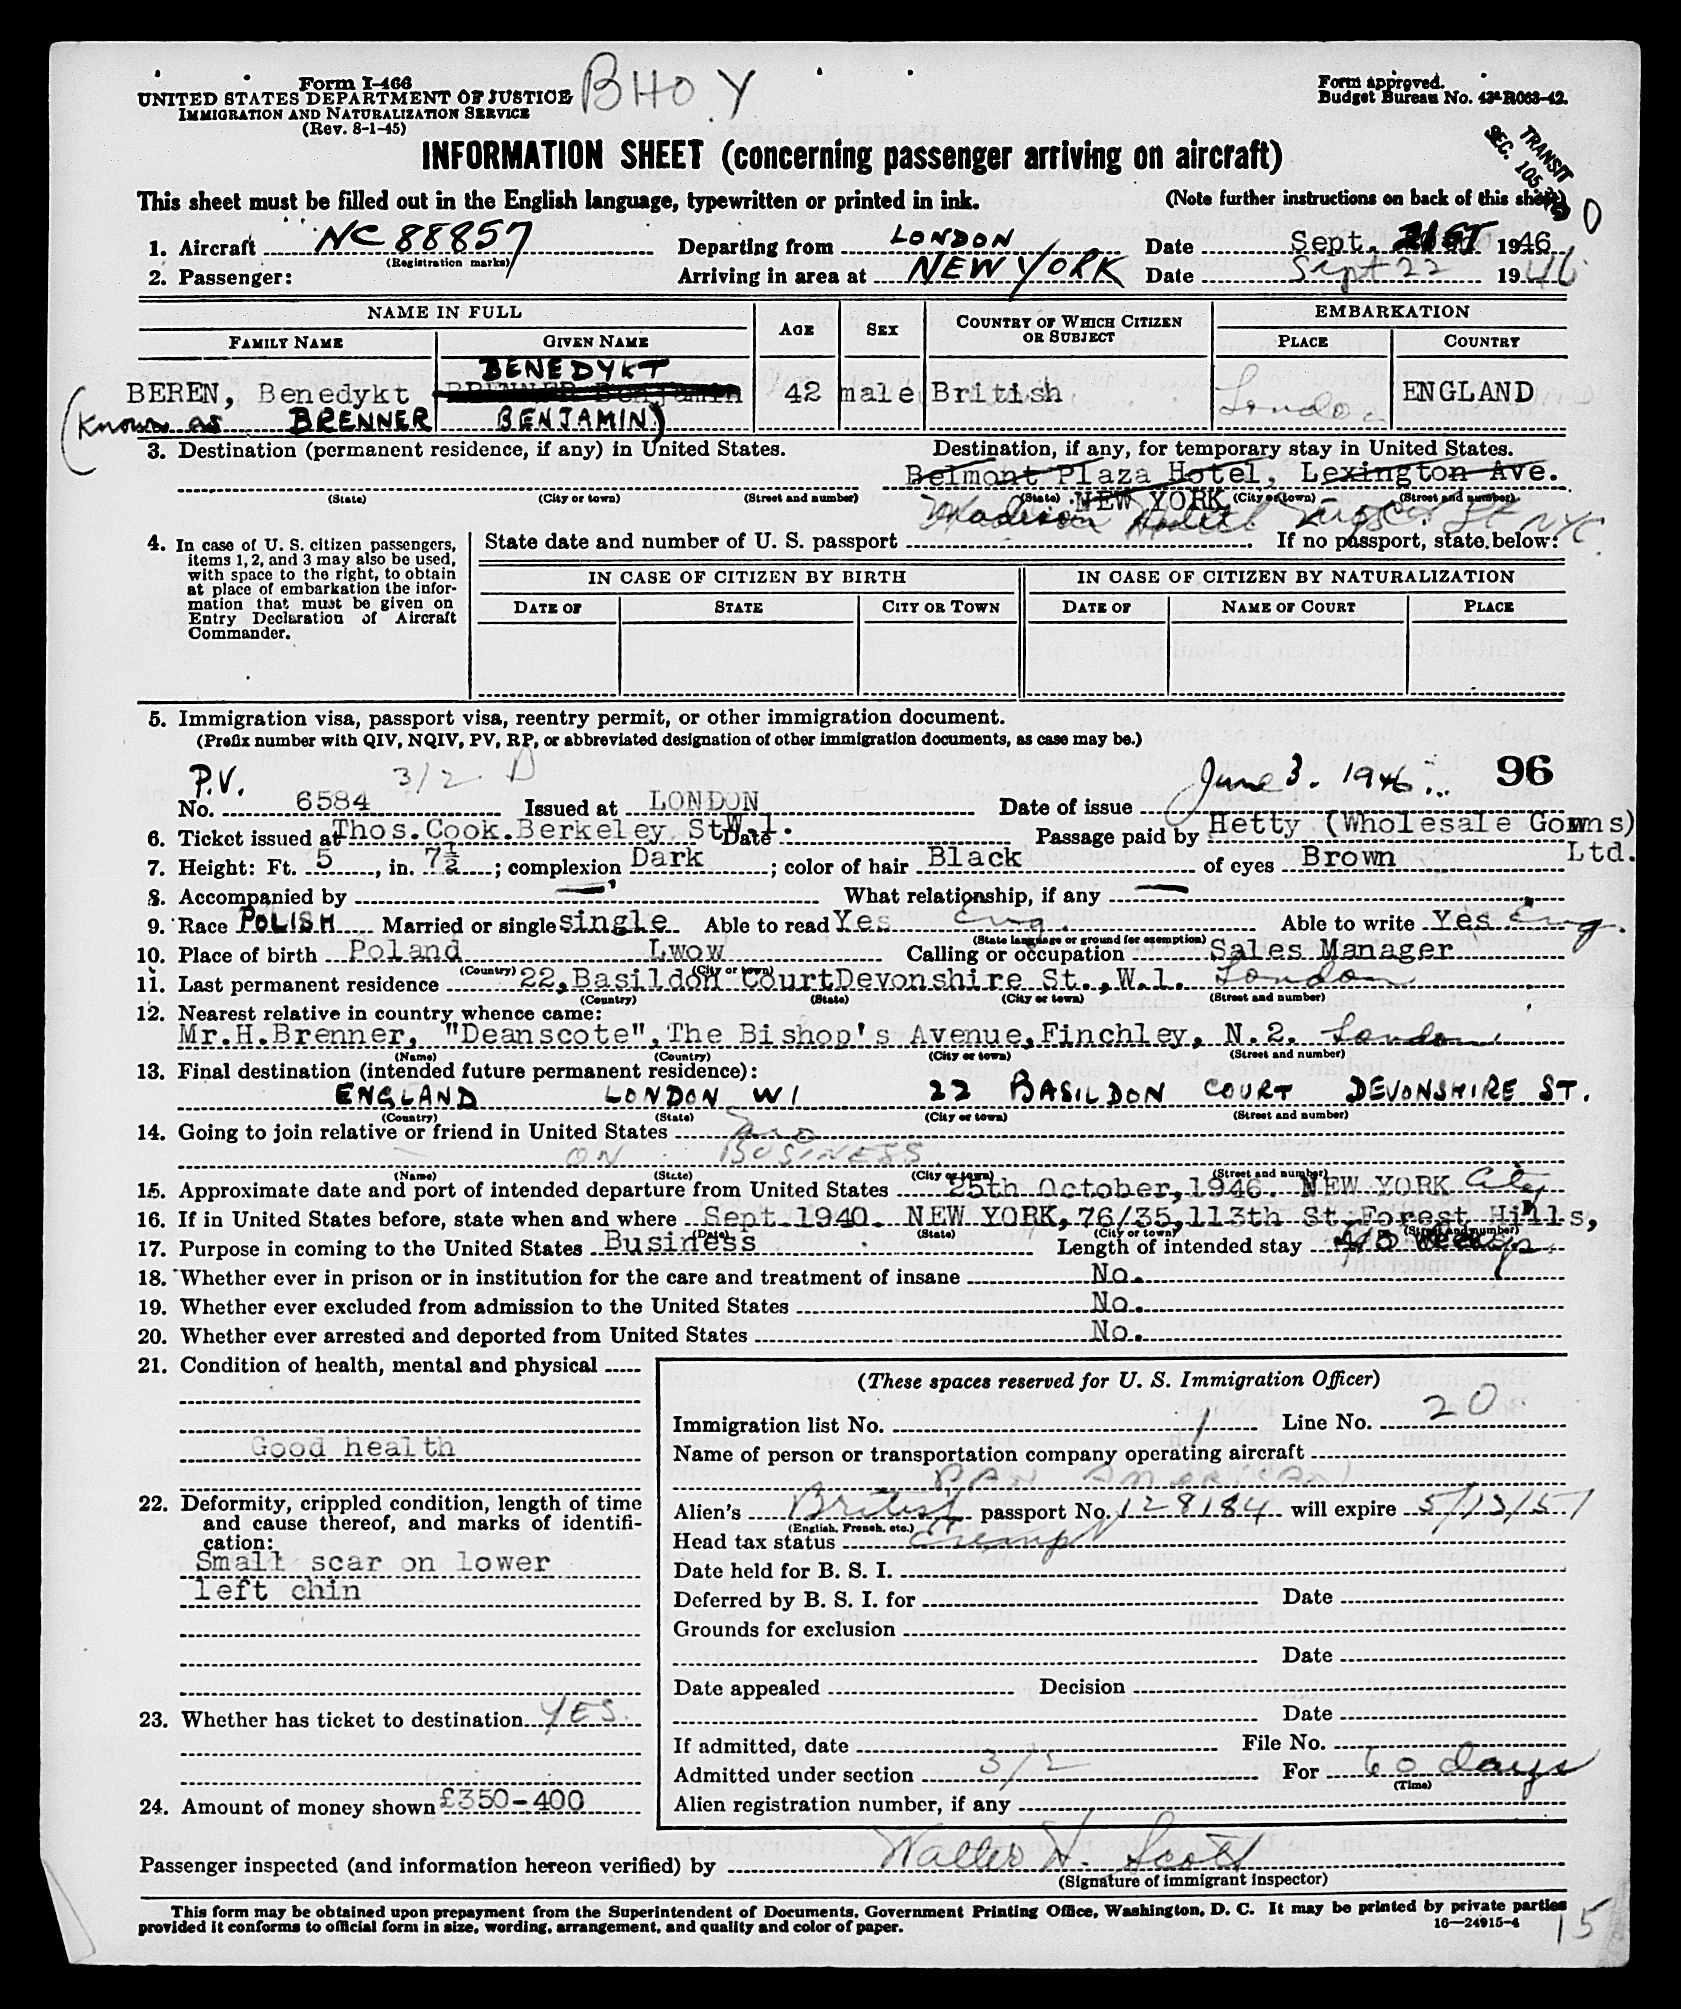 Form I-466
UNITED STATES DEPARTMENT OF JUSTICE
IMMIGRATION AND NATURALIZATION SERVICE
(Rev. 8-1-45)
BHOY
Form approved.
Budget Bureau No. 43-R063-42.
TRANSIT
SEC. 105
INFORMATION SHEET (concerning passenger arriving on aircraft)
This sheet must be filled out in the English language, typewritten or printed in ink. (Note further instructions on back of this sheet)
1. Aircraft NC 88857 Departing from LONDON Date Sept. 21ST 1946
(Registration marks)
2. Passenger: Arriving in area at NEW YORK Date Sept 22 1946
NAME IN FULL AGE SEX COUNTRY OF WHICH CITIZEN OR SUBJECT EMBARKATION
FAMILY NAME GIVEN NAME PLACE COUNTRY
BENEDYKT
BEREN, Benedykt BRENNER Benjamin 42 male British London ENGLAND
(Known as BRENNER BENJAMIN)
3. Destination (permanent residence, if any) in United States. Destination, if any, for temporary stay in United States.
Belmont Plaza Hotel, Lexington Ave.
(State) (City or town) (Street and number) (State) NEW YORK (City or town) (Street and number)
Madison Hotel St NYC.
4. In case of U. S. citizen passengers, items 1, 2, and 3 may also be used, with space to the right, to obtain at place of embarkation the information that must be given on Entry Declaration of Aircraft Commander.
State date and number of U. S. passport If no passport, state below:
IN CASE OF CITIZEN BY BIRTH IN CASE OF CITIZEN BY NATURALIZATION
DATE OF STATE CITY OR TOWN DATE OF NAME OF COURT PLACE
5. Immigration visa, passport visa, reentry permit, or other immigration document.
(Prefix number with QIV, NQIV, PV, RP, or abbreviated designation of other immigration documents, as case may be.)
P.V. 3/2 D 96
No. 6584 Issued at LONDON Date of issue June 3. 1946
6. Ticket issued at Thos.Cook.Berkeley St W.1. Date Passage paid by Hetty (Wholesale Gowns) Ltd.
7. Height: Ft. 5, in. 7½; complexion Dark; color of hair Black of eyes Brown
8. Accompanied by — What relationship, if any —
9. Race POLISH Married or single single Able to read Yes Eng. Able to write Yes Eng.
(State language or ground for exemption)
10. Place of birth Poland Lwow Calling or occupation Sales Manager
(Country) (City or town)
11. Last permanent residence 22,Basildon Court Devonshire St.,W.1. London
(Country) (State) (City or town) (Street and number)
12. Nearest relative in country whence came:
Mr.H.Brenner, "Deanscote",The Bishop's Avenue,Finchley, N.2. London
(Name) (Country) (City or town) (Street and number)
13. Final destination (intended future permanent residence):
ENGLAND LONDON W1 22 BASILDON COURT DEVONSHIRE ST.
(Country) (State) (City or town) (Street and number)
14. Going to join relative or friend in United States no
ON BUSINESS
(Name) (State) (City or town) (Street and number)
15. Approximate date and port of intended departure from United States 25th October,1946. NEW YORK City
16. If in United States before, state when and where Sept 1940. NEW YORK,76/35,113th St.Forest Hills,
(Date) (State) (City or town) (Street and number)
17. Purpose in coming to the United States Business Length of intended stay 4/5 Weeks
18. Whether ever in prison or in institution for the care and treatment of insane No.
19. Whether ever excluded from admission to the United States No.
20. Whether ever arrested and deported from United States No.
21. Condition of health, mental and physical
Good health
22. Deformity, crippled condition, length of time and cause thereof, and marks of identification:
Small scar on lower
left chin
23. Whether has ticket to destination YES.
24. Amount of money shown £350-400
(These spaces reserved for U. S. Immigration Officer)
Immigration list No. 1 Line No. 20
Name of person or transportation company operating aircraft
PAN AMERICAN
Alien's British passport No. 128184 will expire 5/13/51
(English, French, etc.)
Head tax status Exempt
Date held for B. S. I.
Deferred by B. S. I. for Date
Grounds for exclusion
Date
Date appealed Decision
Date
If admitted, date File No.
Admitted under section 3/2 For 60 days
(Time)
Alien registration number, if any
Passenger inspected (and information hereon verified) by Walter H. Scott
(Signature of immigrant inspector)
This form may be obtained upon prepayment from the Superintendent of Documents, Government Printing Office, Washington, D. C. It may be printed by private parties
provided it conforms to official form in size, wording, arrangement, and quality and color of paper. 16—24915-4
15